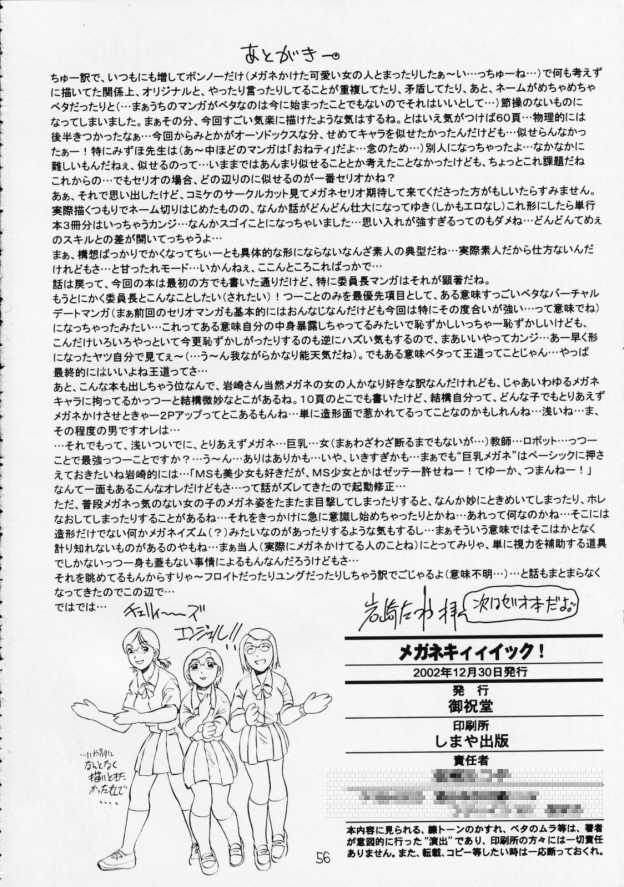 あとがきー
ちゅー訳で、いつもにも増してボンノーだけ(メガネかけた可愛い女の人とまったりしたぁ～い…っちゅーね…)で何も考えず
に描いてた関係上、オリジナルと、やったり言ったりしてることが重複してたり、矛盾してたり、あと、ネームがめちゃめちゃ
ベタだったりと(…まぁうちのマンガがベタなのは今に始まったことでもないのでそれはいいとして…)節操のないものに
なってしまいました。まぁその分、今回すごい気楽に描けたような気はするね。とはいえ気がつけば60頁…物理的には
後半きつかったなぁ…今回からみとかがオーソドックスな分、せめてキャラを似せたかったんだけども…似せらんなかっ
たぁー！特にみずほ先生は(あ～中ほどのマンガは「おねティ」だよ…念のため…)別人になっちゃったよ…なかなかに
難しいもんだねぇ、似せるのって…いままではあんまり似せることとか考えたことなかったけども、ちょっとこれ課題だね
これからの…でもセリオの場合、どの辺りのに似せるのが一番セリオかね？
あぁ、それで思い出したけど、コミケのサークルカット見てメガネセリオ期待して来てくださった方がもしいたらすみません。
実際描くつもりでネーム切りはじめたものの、なんか話がどんどん壮大になってゆき(しかもエロなし)これ形にしたら単行
本3冊分はいっちゃうカンジ…なんかスゴイことになっちゃいました…思い入れが強すぎるってのもダメね…どんどんてめぇ
のスキルとの差が開いてっちゃうよ…
まぁ、構想ばっかりでかくなってちぃーとも具体的な形にならないなんざ素人の典型だね…実際素人だから仕方ないんだ
けれどもさ…と甘ったれモード…いかんねぇ、ここんところこればっかで…
話は戻って、今回の本は最初の方でも書いた通りだけど、特に委員長マンガはそれが顕著だね。
もうとにかく委員長とこんなことしたい(されたい)！つーことのみを最優先項目として、ある意味すっごいベタなバーチャル
デートマンガ(まぁ前回のセリオマンガも基本的にはおんなじなんだけども今回は特にその度合いが強い…って意味でね)
になっちゃったみたい…これってある意味自分の中身暴露しちゃってるみたいで恥ずかしいっちゃー恥ずかしいけども、
こんだけいろいろやっといて今更恥ずかしがったりするのも逆にハズい気もするので、まあいいやってカンジ…あー早く形
になったヤツ自分で見てぇ～(…う～ん我ながらかなり能天気だな)。でもある意味ベタって王道ってことじゃん…やっぱ
最終的にはいいよね王道ってさ…
あと、こんな本も出しちゃう位なんで、岩崎さん当然メガネの女の人かなり好きな訳なんだけれども、じゃあいわゆるメガネ
キャラに拘ってるかつっーと結構微妙なとこがあるね。10頁のとこでも書いたけど、結構自分って、どんな子でもとりあえず
メガネかけさせときゃー2Pアップってとこあるもんね…単に造形面で惹かれてるってことなのかもしれんね…浅いね…ま、
その程度の男ですオレは…
…それでもって、浅いついでに、とりあえずメガネ…巨乳…女(まぁわざわざ断るまでもないが…)教師…ロボット…っつー
ことで最強っつーことですか？…う～ん…ありはありかも…いや、いきすぎかも…まぁでも“巨乳メガネ”はベーシックに押さ
えておきたいね岩崎的には…「MSも美少女も好きだが、MS少女とかはゼッテー許せねー！てゆーか、つまんねー！」
なんて一面もあるこんなオレだけどもさ…って話がズレてきたので起動修正…
ただ、普段メガネっ気のない女の子のメガネ姿をたまたま目撃してしまったりすると、なんか妙にときめいてしまったり、ホレ
なおしてしまったりすることがあるね…それをきっかけに急に意識し始めちゃったりとかね…あれって何なのかね…そこには
造形だけでない何かメガネイズム(？)みたいなのがあったりするような気もするし…まぁそういう意味ではそこはかとなく
計り知れないものがあるのやもね…まぁ当人(実際にメガネかけてる人のことね)にとってみりゃ、単に視力を補助する道具
でしかないっつー身も蓋もない事情によるもんなんだろうけどもさ…
それを眺めてるもんからすりゃ～フロイトだったりユングだったりしちゃう訳でごじゃるよ(意味不明…)…と話もまとまらなく
なってきたのでこの辺で…
ではでは…
岩崎たつや 拝
次はゼオ本だよ
チェリィ～～ズ
エンジェル!!
なんとなく
描いときた
かった丈で
・・・・
メガネキィィイック！
2002年12月30日発行
発 行
御祝堂
印刷所
しまや出版
責任者
本内容に見られる、線トーンのかすれ、ベタのムラ等は、著者
が意図的に行った“演出”であり、印刷所の方々には一切責任
ありません。また、転載、コピー等したい時は一応断っておくれ。
56